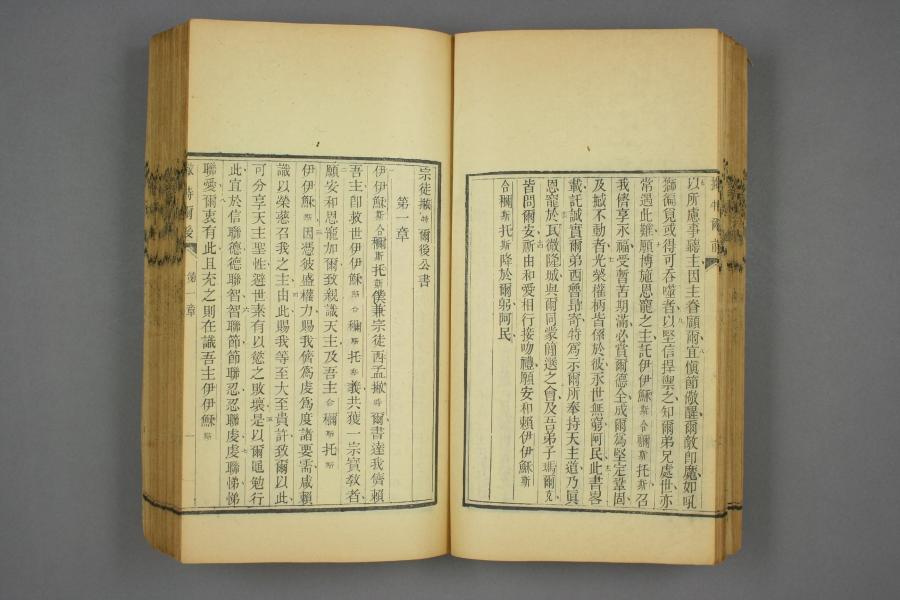 以所慮事聽主因主眷顧爾宜愼節儆醒爾敵卽魔如吼
獅徧覓或得可吞噬者以堅信捍禦之知爾弟兄處世亦
常遇此難願博施恩寵之主託伊伊穌斯合穪斯托斯召
我儕享永福受暫苦期滿必賞爾德全成爾爲堅定鞏固
及撼不動者光榮權柄皆係於彼永世無窮阿民此書畧
載託誠實爾弟西魯瑪寄特爲示爾所奉持天主道乃眞
恩寵於瓦微隆城與爾同蒙簡選之會及吾弟子瑪爾克
皆問爾安所由和愛相行接吻禮願安和賴伊伊穌斯
合穪斯托斯降於爾躬阿民
宗徒撇特爾後公書
第一章
伊伊穌斯合穪斯托斯僕兼宗徒西孟撇特爾書達我儕賴
吾主卽救世伊伊穌斯合穪斯托斯義共獲一宗寶敎者
願安和恩寵加爾致親識天主及吾主合穪斯托斯
伊伊穌斯因憑彼盛權力賜我儕爲虔爲度諸要需咸賴
識以榮慈召我之主由此賜我等至大至貴許致爾以此
可分享天主聖性避世素有以慾之敗壞是以爾黽勉行
此宜於信聯德德聯智智聯節節聯忍忍聯虔虔聯悌悌
聯愛爾衷有此且充之則在識吾主伊伊穌斯
特爾後
第一章
一